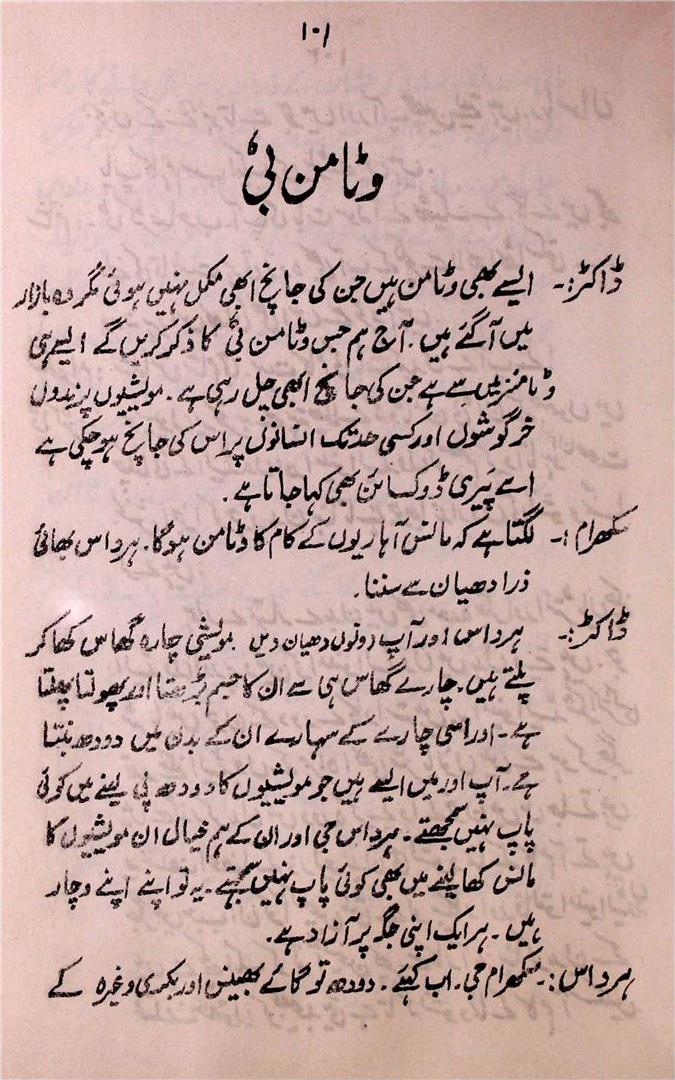 ۱۰۱
وٹامن بی۶
ڈاکٹر:۔ ایسے بھی وٹامن ہیں جن کی جانچ ابھی مکمل نہیں ہوئی مگر وہ بازار
میں آگئے ہیں۔ آج ہم جس وٹامن بی۶ کا ذکر کریں گے ایسے ہی
وٹامنز میں سے ہے جن کی جانچ ابھی چل رہی ہے۔ مویشیوں پرندوں
خرگوشوں اور کسی حد تک انسانوں پر اس کی جانچ ہو چکی ہے
اسے پَیری ڈوکسائن بھی کہا جاتا ہے۔
سکھرام:۔ لگتا ہے کہ مانس آہاریوں کے کام کا وٹامن ہوگا۔ ہرداس بھائی
ذرا دھیان سے سننا۔
ڈاکٹر:۔ ہرداس اور آپ دونوں دھیان دیں مویشی چارہ گھاس کھا کر
پلتے ہیں۔ چارے گھاس ہی سے ان کا جسم بڑھتا اور پھولتا پھلتا
ہے۔ اور اسی چارے کے سہارے ان کے بدن میں دودھ بنتا
ہے۔ آپ اور میں ایسے ہیں جو مویشیوں کا دودھ پی لینے میں کوئی
پاپ نہیں سمجھتے۔ ہرداس جی اور ان کے ہم خیال ان مویشیوں کا
مانس کھا لینے میں بھی کوئی پاپ نہیں سمجھتے۔ یہ تو اپنے اپنے وچار
ہیں۔ ہر ایک اپنی جگہ پر آزاد ہے۔
ہرداس:۔ سکھرام جی۔ اب کہئے۔ دودھ تو گائے بھینس اور بکری وغیرہ کے